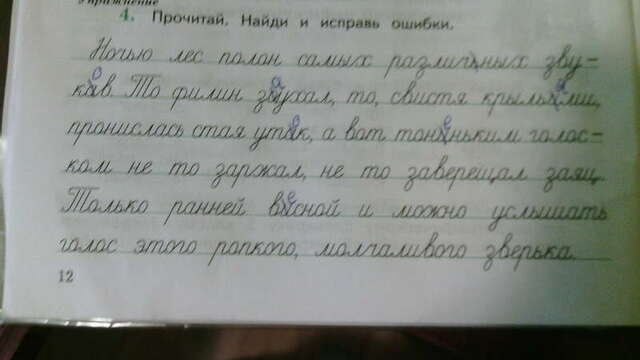 Упражнение
4. Прочитай. Найди и исправь ошибки.
Ночью лес полон самых различных зву-
ков. То филин заухал, то, свистя крыльями,
пронислась стая уток, а вот тоненьким голос-
ком не то заржал, не то заверещал заяц.
Только ранней весной и можно услышать
голос этого ропкого, молчаливого зверька.
12